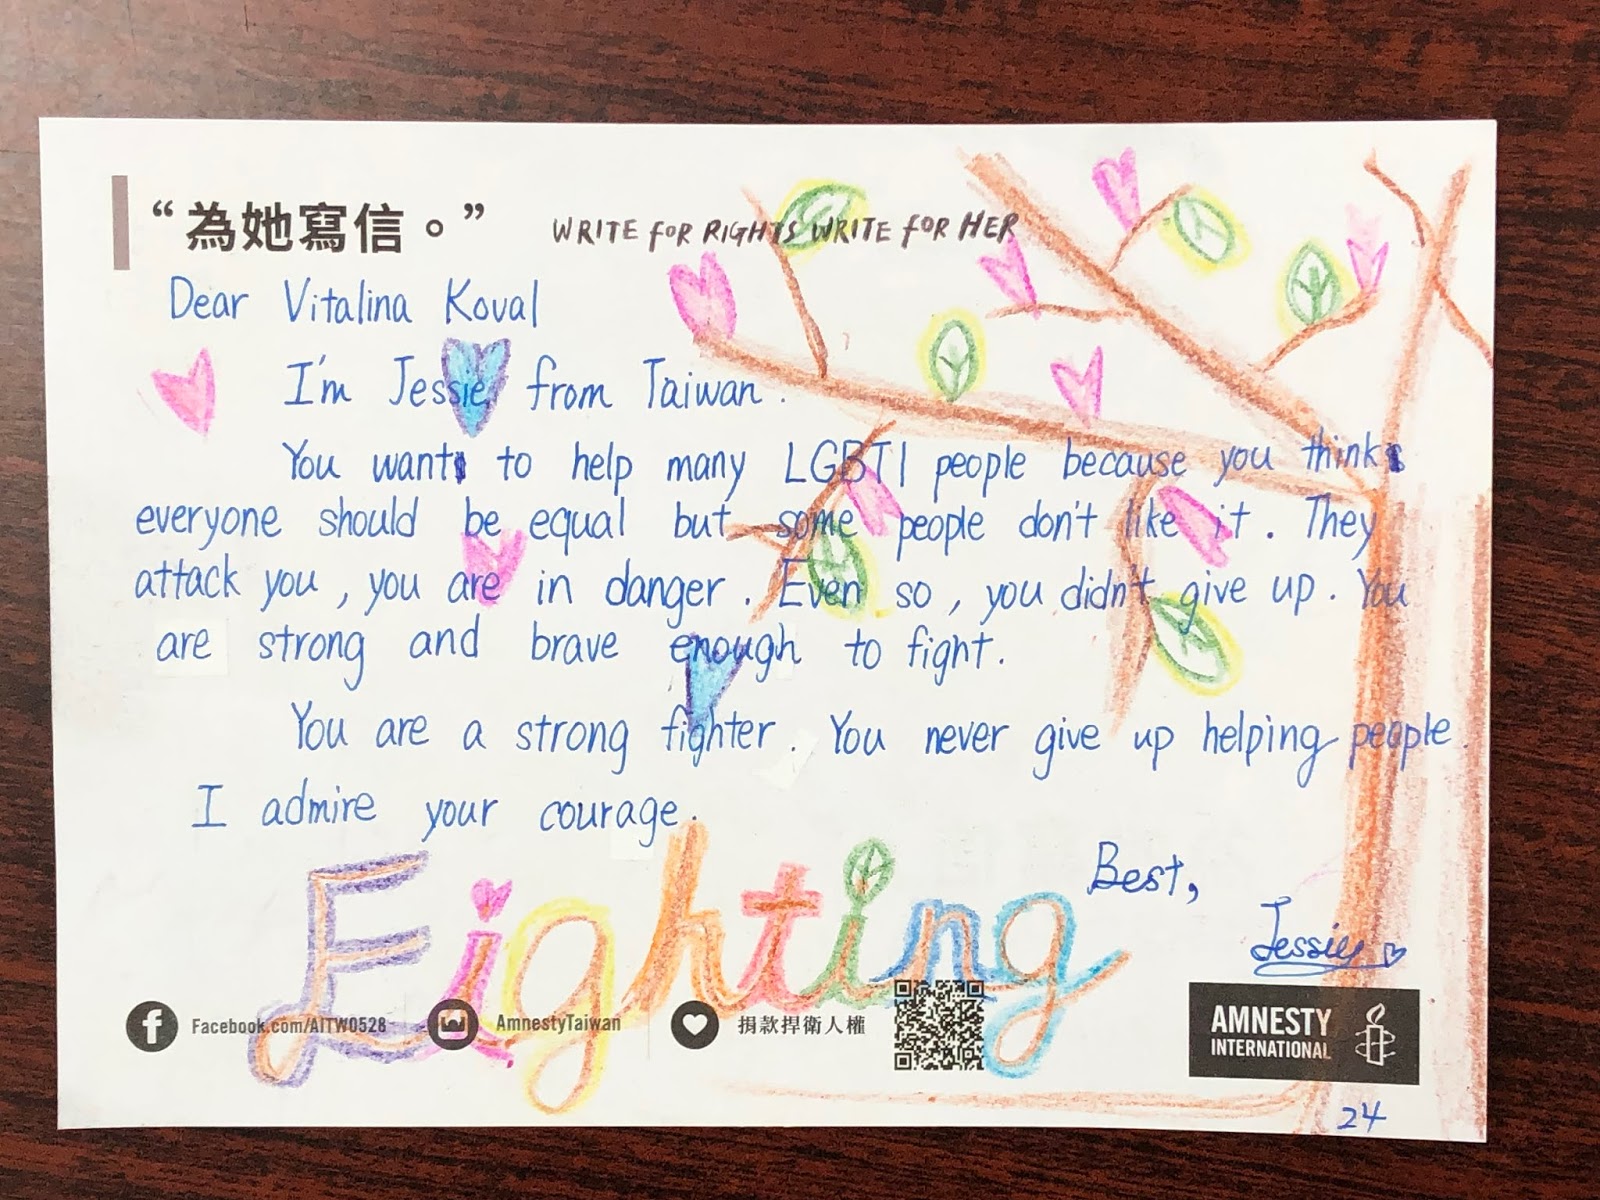 “為她寫信。” WRITE FOR RIGHTS WRITE FOR HER
Dear Vitalina Koval
I'm Jessie from Taiwan.
You want to help many LGBTI people because you think
everyone should be equal but some people don't like it. They
attack you, you are in danger. Even so, you didn't give up. You
are strong and brave enough to fight.
You are a strong fighter. You never give up helping people.
I admire your courage.
Best,
Jessie
Fighting
Facebook.com/AITW0528 AmnestyTaiwan 捐款捍衛人權
AMNESTY
INTERNATIONAL
24